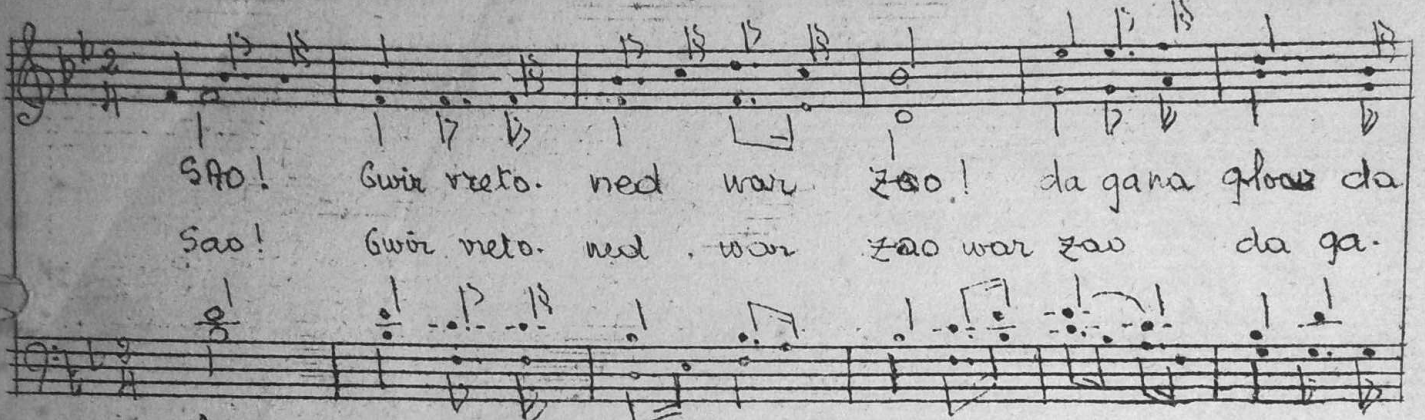 SAO! Gwir vreto. ned war zao! da gana gloar da
Sao! Gwir vreto. ned . war zao war zao da ga.